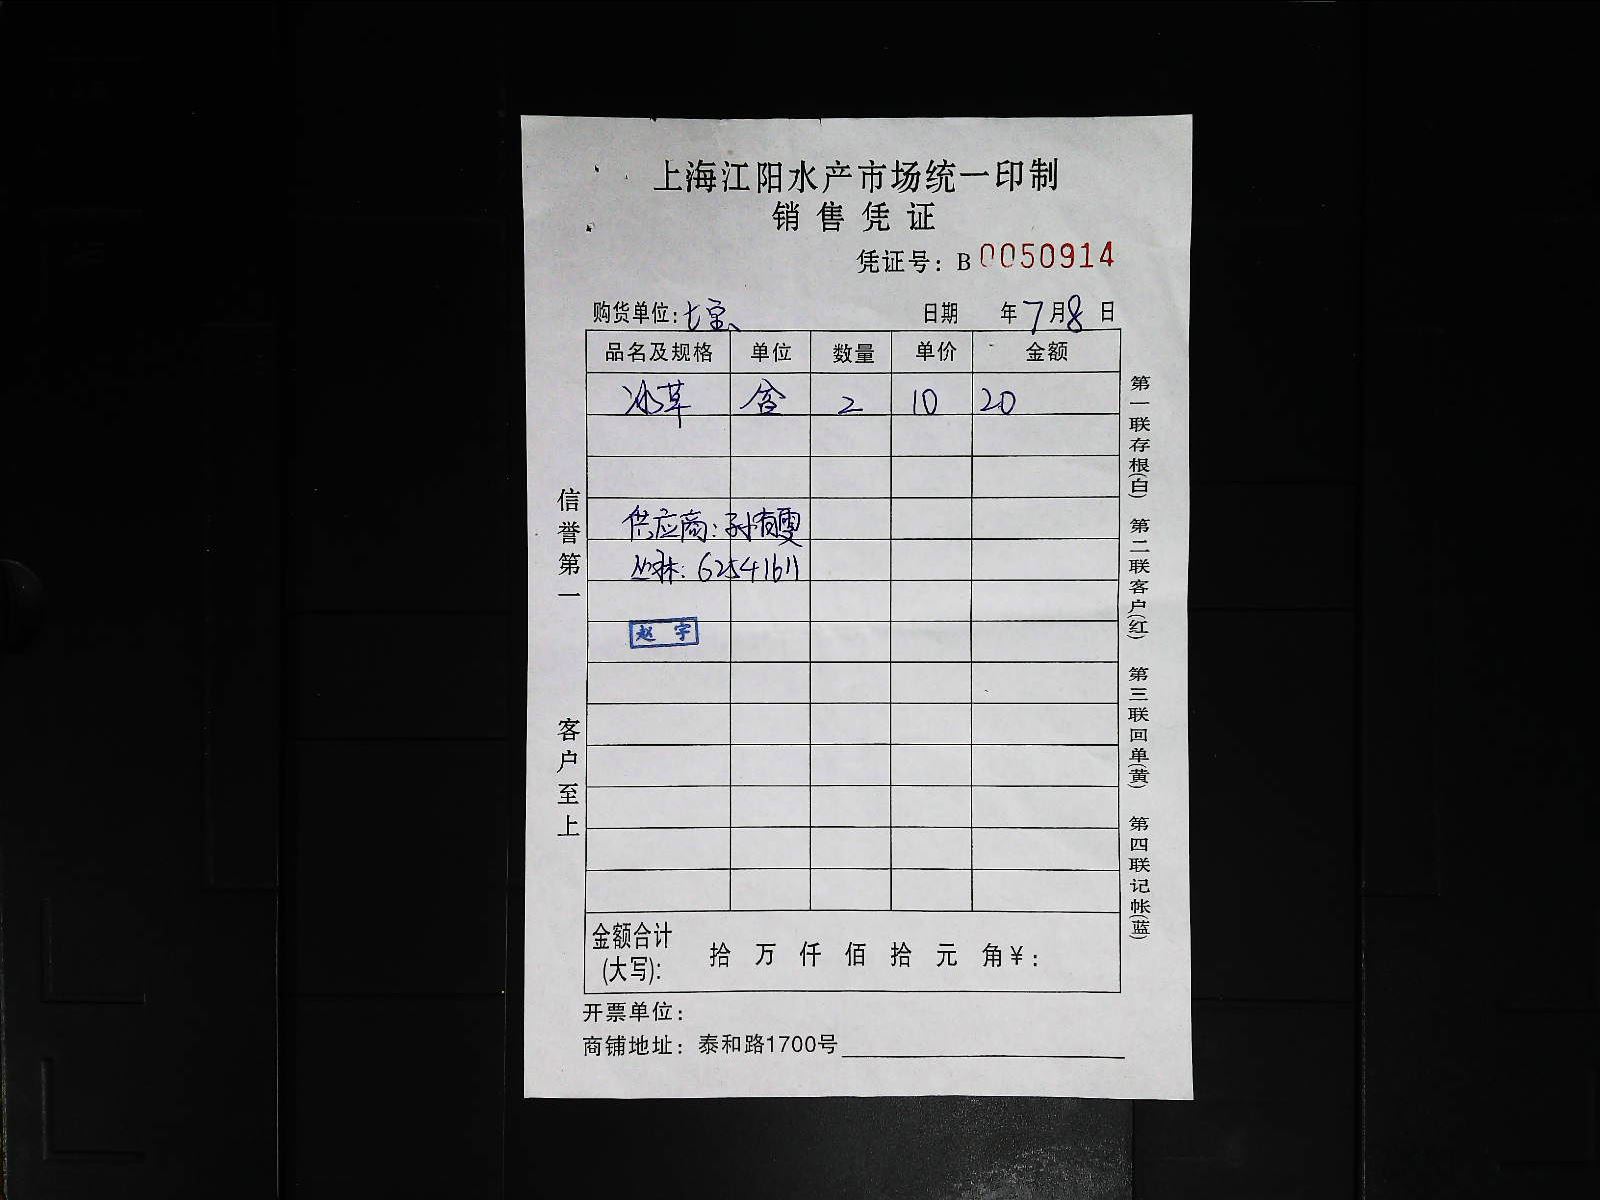 上海江阳水产市场统一印制
销售凭证
凭证号：B 0050914
购货单位：七宝 日期 年7月8日
品名及规格 单位 数量 单价 金额
冰草 盒 2 10 20
供应商：孙有雯
丛林：62541611
赵宇
信誉第一 客户至上
第一联存根(白) 第二联客户(红) 第三联回单(黄) 第四联记帐(蓝)
金额合计
(大写)： 拾 万 仟 佰 拾 元 角￥：
开票单位：
商铺地址：泰和路1700号